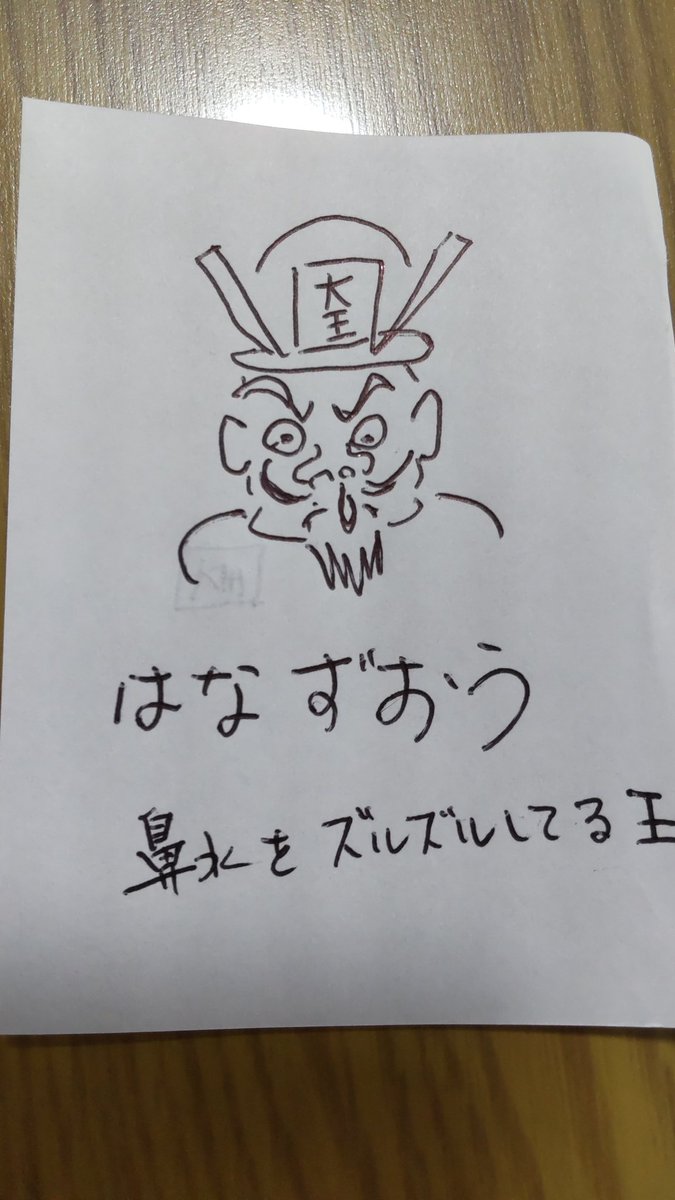 大王
はなずおう
鼻水をズルズルしてる王